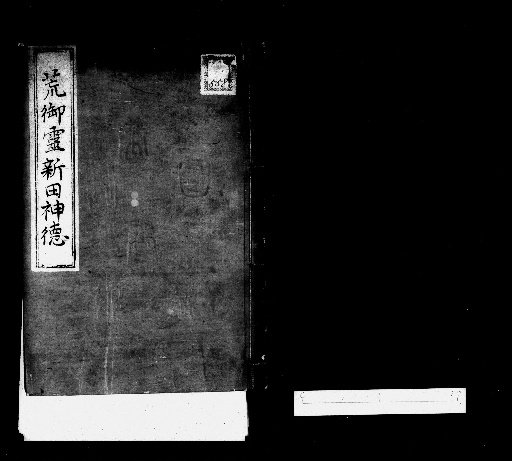 荒御霊新田神徳